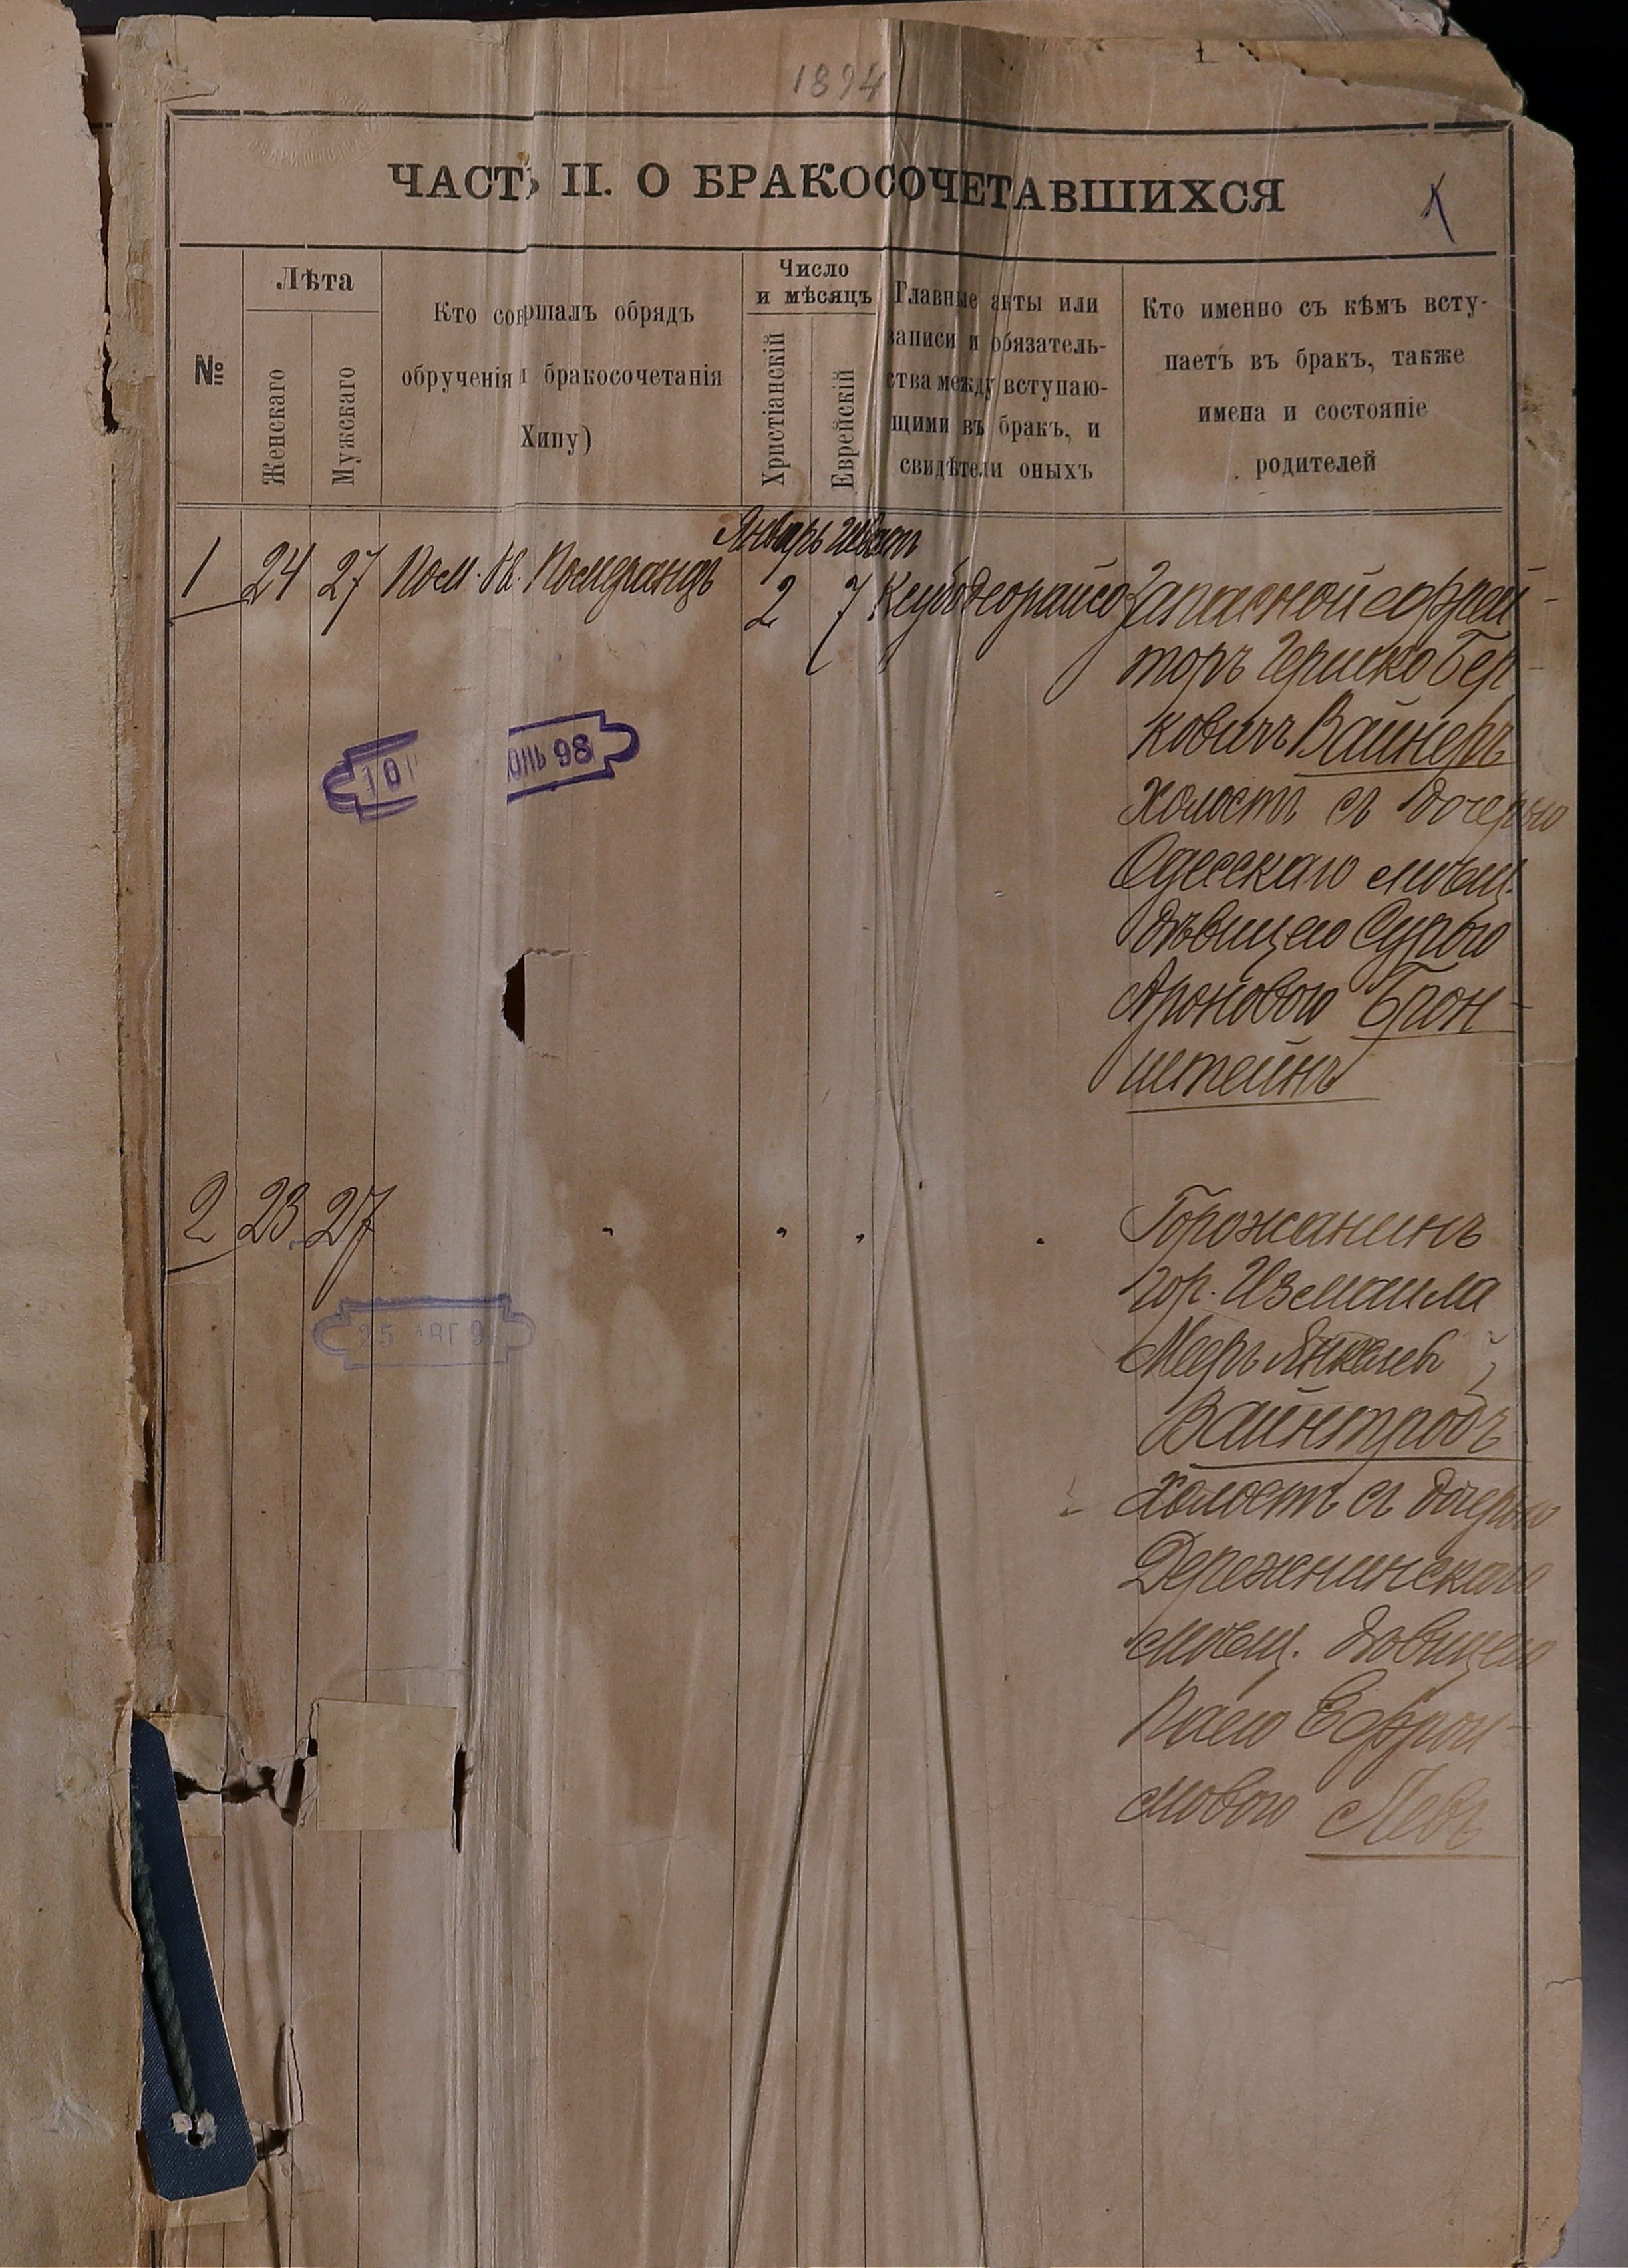 1894
ЧАСТЬ II. О БРАКОСОЧЕТАВШИХСЯ
№
Лѣта
Женскаго
Мужскаго
Кто сов ршалъ обрядъ
обрученія и бракосочетанія
Хипу)
Число
и мѣсяцъ
Христіанскій
Еврейскій
Главные акты или
записи и обязатель-
ства между вступаю-
щими въ бракъ, и
свидѣтели оныхъ
Кто именно съ кѣмъ всту-
паетъ въ бракъ, также
имена и состояніе
родителей
Январь Шватъ
1 24 27 Пом. Померанцъ 2 7
Запасной ефрей-
торъ Гершко Бер-
ковичъ Вайнеръ
холостъ съ дочерью
Одесскаго мѣщ.
дѣвицею Сурою
Ароновою Брон-
штейнъ
10 ЮНЬ 98
2 23 27 " " " "
Горожанинъ
гор. Измаила
Мееръ Янкелев
Вайнтробъ
холостъ съ дочерью
Деражнинскаго
мѣщ. дѣвицею
Ефрои-
мовою Левъ
25 АВГ 9